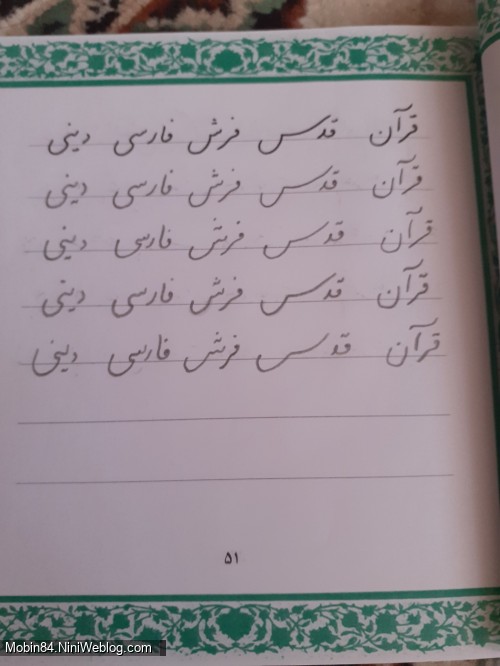 قرآن قدس فرش فارسی دینی
قرآن قدس فرش فارسی دینی
قرآن قدس فرش فارسی دینی
قرآن قدس فرش فارسی دینی
قرآن قدس فرش فارسی دینی
۵۱
Mobin84.NiniWeblog.com